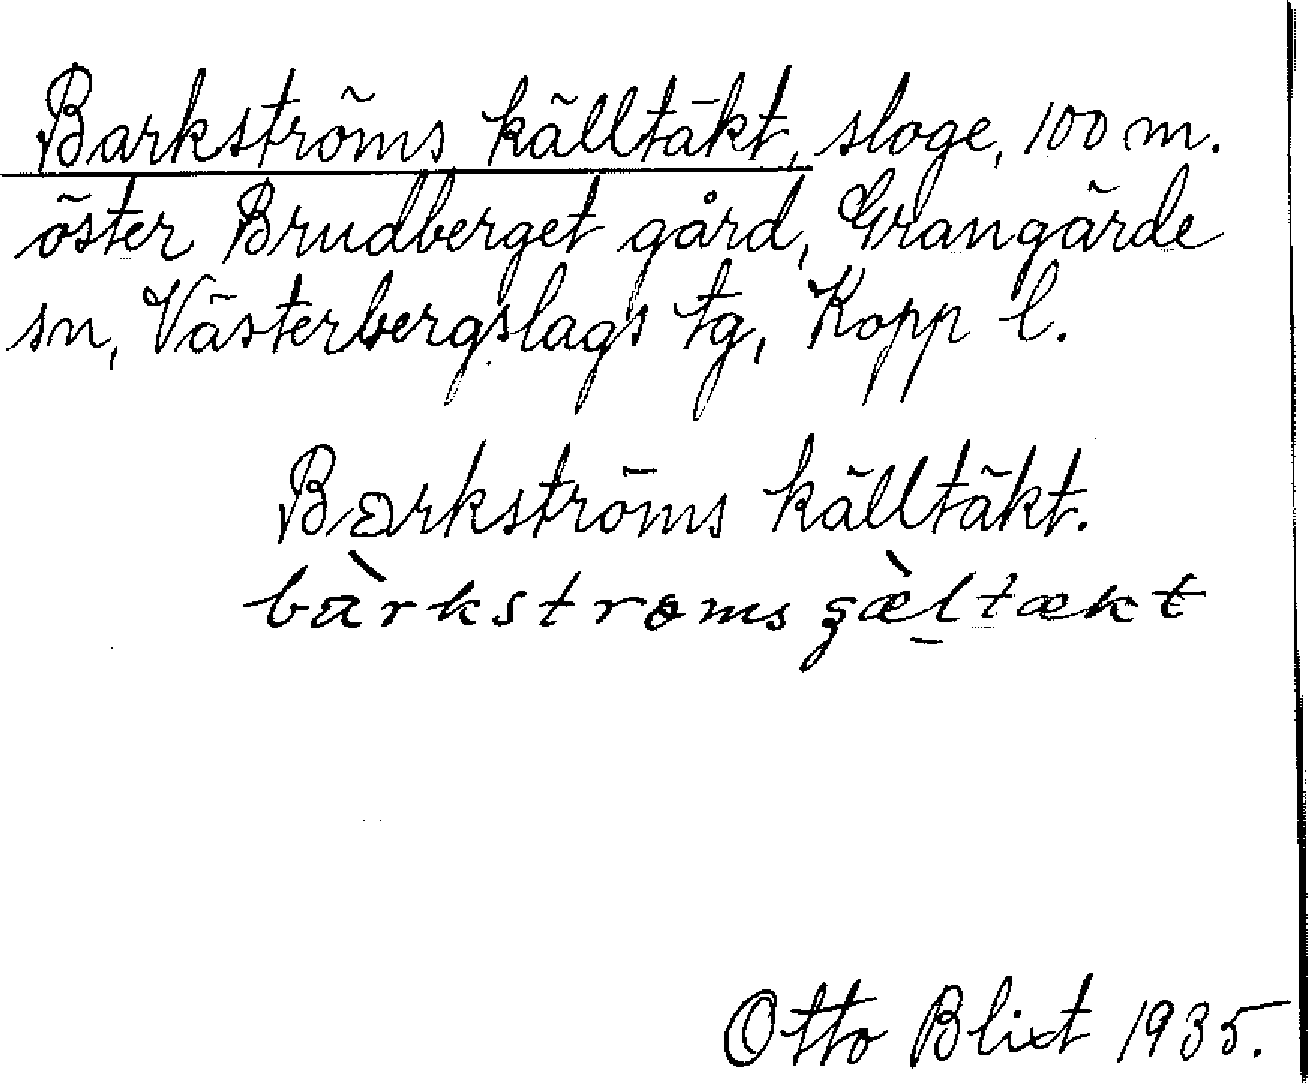 Barkströms källtäkt, sloge, 100 m.
öster Brudberget gård, Grangärde
sn, Västerbergslags tg, Kopp l.
Barkströms källtäkt.
bàrkstrɷms ʒæ̀ltækt
Otto Blixt 1935.